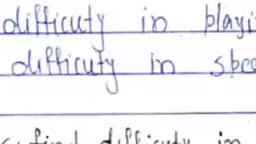 difficuty in playi
difficuty in spee
find difficuty in